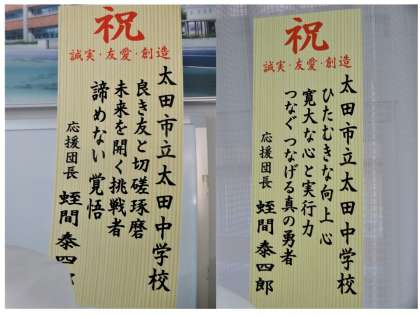 祝
誠実・友愛・創造
太田市立太田中学校
良き友と切磋琢磨
未来を開く挑戦者
諦めない 覚悟
応援団長 蛭間 泰四郎
祝
誠実・友愛・創造
太田市立太田中学校
ひたむきな向上心
寛大な心と実行力
つなぐつなげる真の勇者
応援団長 蛭間 泰四郎